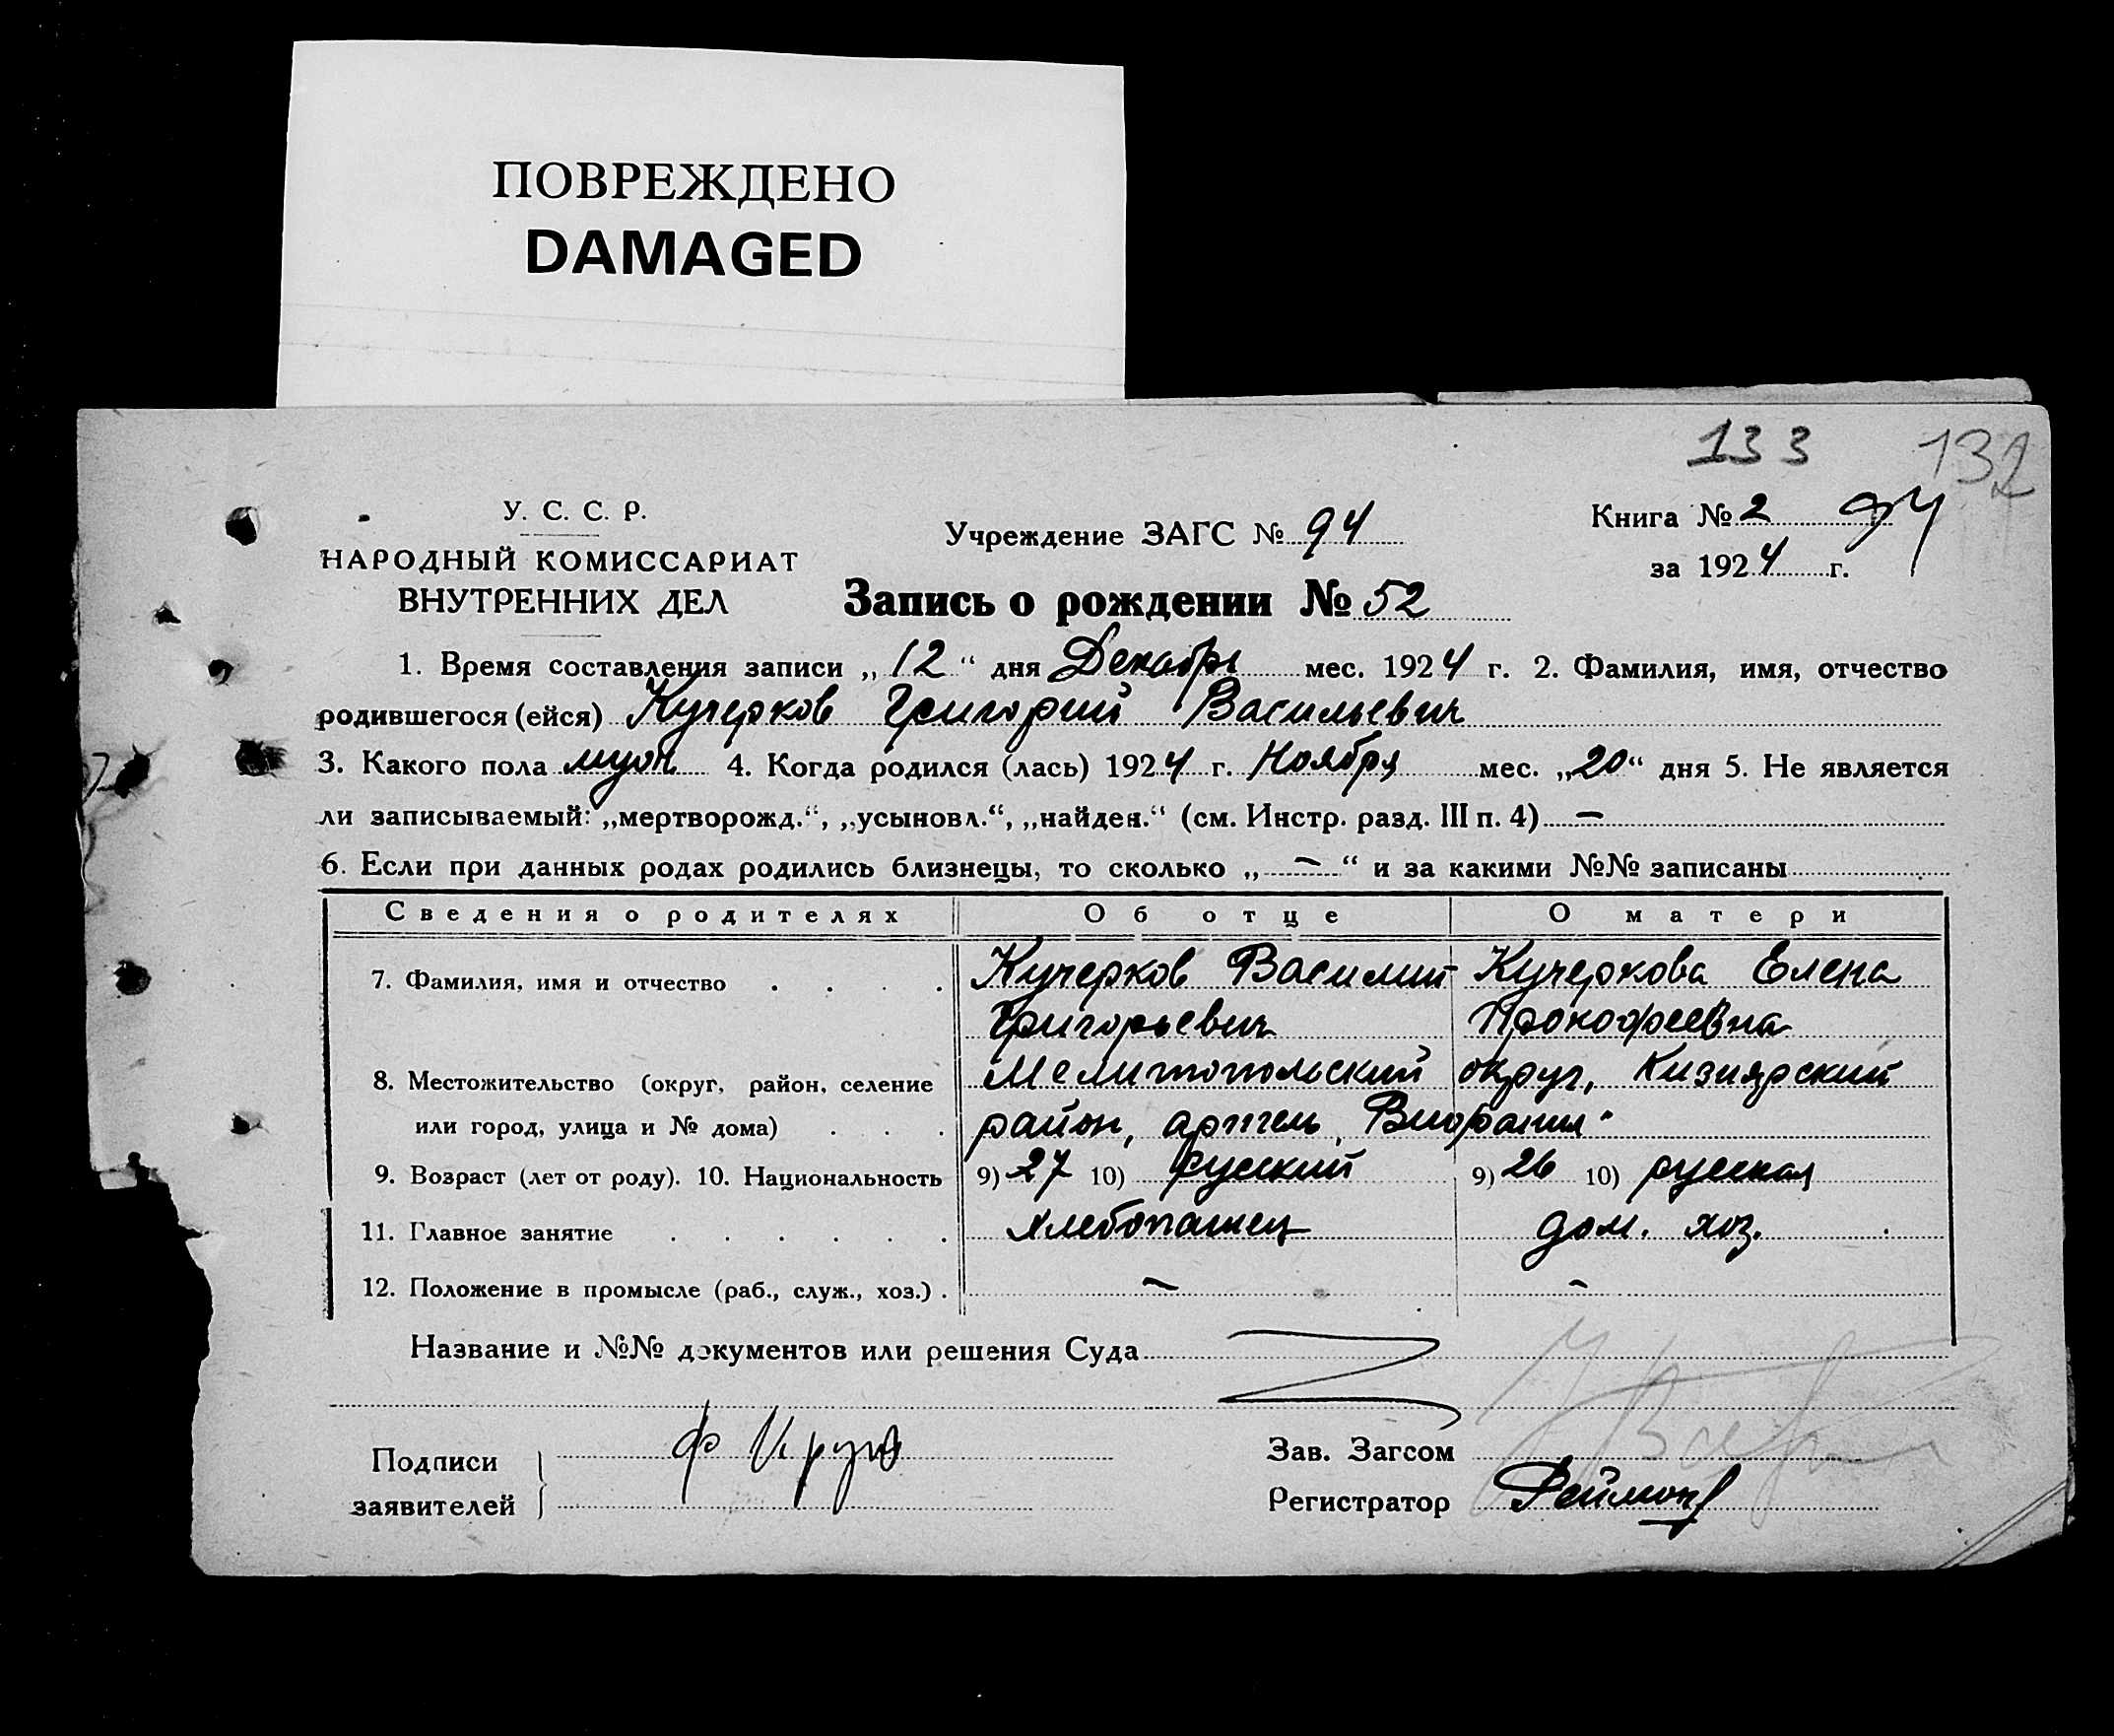 ПОВРЕЖДЕНО
DAMAGED
133 132
У. С. С. Р.
НАРОДНЫЙ КОМИССАРИАТ
ВНУТРЕННИХ ДЕЛ
Учреждение ЗАГС № 94
Книга № 2
за 1924 г.
Запись о рождении № 52
1. Время составления записи „12“ дня Декабрь мес. 1924 г. 2. Фамилия, имя, отчество
родившегося (ейся) Кучерков Григорий Васильевич
3. Какого пола муж 4. Когда родился (лась) 1924 г. Ноября мес. „20“ дня 5. Не является
ли записываемый: „мертворожд.“, „усыновл.“, „найден.“ (см. Инстр. разд. III п. 4) —
6. Если при данных родах родились близнецы, то сколько „—“ и за какими №№ записаны
Сведения о родителях Об отце О матери
7. Фамилия, имя и отчество . . . . Кучерков Василий Кучеркова Елена
Григорьевич Прокофеевна
8. Местожительство (округ, район, селение Мелитопольский округ, Кизиярский
или город, улица и № дома) . . . район, артель
9. Возраст (лет от роду). 10. Национальность 9) 27 10) русский 9) 26 10) русская
11. Главное занятие . . . . . . хлебопашец дом. хоз.
12. Положение в промысле (раб., служ., хоз.) . — —
Название и №№ документов или решения Суда
Подписи
заявителей
Зав. Загсом
Регистратор